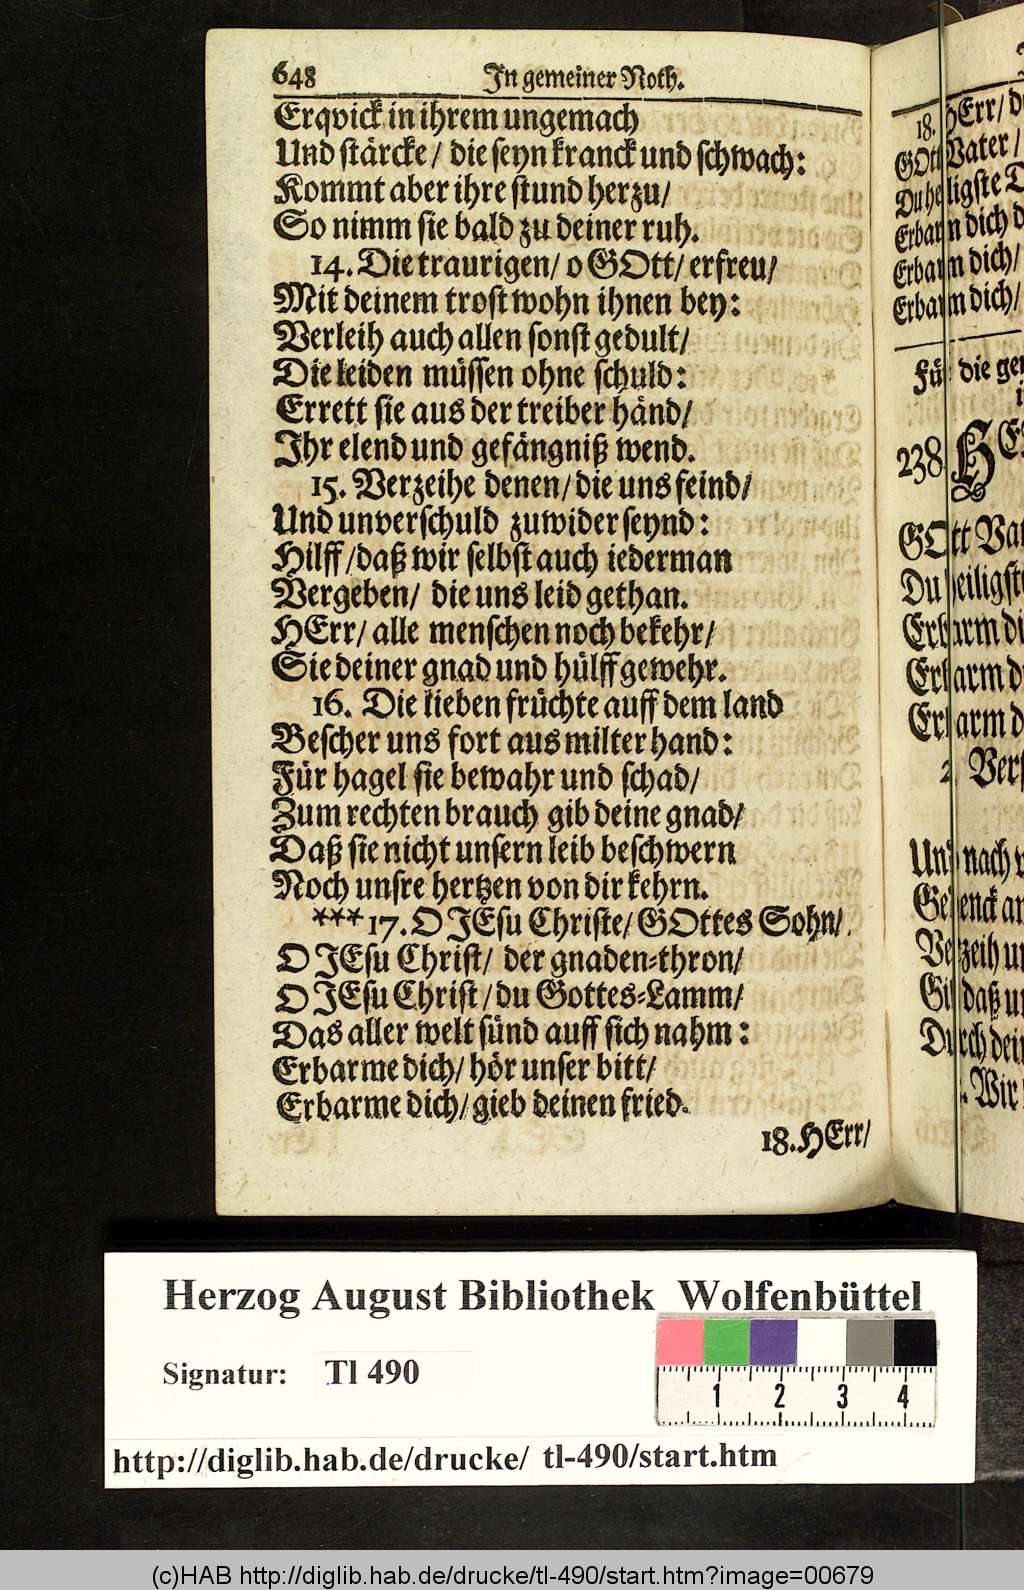 648 In gemeiner Noth.
Erqvick in ihrem ungemach
Und stärcke/ die seyn kranck und schwach:
Kommt aber ihre stund herzu/
So nimm sie bald zu deiner ruh.
14. Die traurigen/ o GOtt/ erfreu/
Mit deinem trost wohn ihnen bey:
Verleih auch allen sonst gedult/
Die leiden müssen ohne schuld:
Errett sie aus der treiber händ/
Ihr elend und gefängniß wend.
15. Verzeihe denen/ die uns feind/
Und unverschuld zuwider seynd:
Hilff/ daß wir selbst auch iederman
Vergeben/ die uns leid gethan.
HErr/ alle menschen noch bekehr/
Sie deiner gnad und hülff gewehr.
16. Die lieben früchte auff dem land
Bescher uns fort aus milter hand:
Für hagel sie bewahr und schad/
Zum rechten brauch gib deine gnad/
Daß sie nicht unsern leib beschwern
Noch unsre hertzen von dir kehrn.
*** 17. O JEsu Christe/ GOttes Sohn/
O JEsu Christ/ der gnaden-thron/
O JEsu Christ/ du Gottes-Lamm/
Das aller welt sünd auff sich nahm:
Erbarme dich/ hör unser bitt/
Erbarme dich/ gieb deinen fried.
18. HErr/
18. HErr/
GOtt Vater/
Du heiligste
Erbarm dich
Erbarm dich/
Erbarm dich/
Für die
238.
GOtt
Du heiligste
Erbarm
Erbarm
Erbarm
2.
Und nach
Gedenck
Verzeih
daß
Durch
Wir
Herzog August Bibliothek Wolfenbüttel
Signatur: Tl 490
1 2 3 4
http://diglib.hab.de/drucke/ tl-490/start.htm
(c)HAB http://diglib.hab.de/drucke/tl-490/start.htm?image=00679